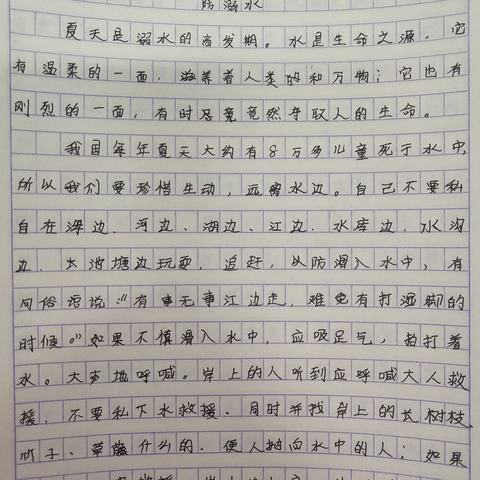 防溺水
夏天是溺水的高发期。水是生命之源，它
有温柔的一面，滋养着人类的和万物；它也有
刚烈的一面，有时尽竟竟然夺取人的生命。
我国每年夏天大约有8万多儿童死于水中，
所以我们要珍惜生动，远离水边。自己不要私
自在深边、河边、湖边、江边、水库边、水沟
边、水池塘边玩耍，追赶，以防滑入水中，有
句俗语说：“有事无事江边走，难免有打湿脚的
时候。”如果不慎滑入水中，应吸足气，拍打着
水。大声地呼喊。岸上的人听到应呼喊大人救
援，不要私下水救援。同时并找岸上的长树枝、
竹子、草藤什么的，便人抛向水中的人；如果